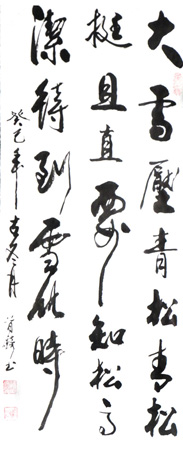 大雪壓青松青松
挺且直要知松高
潔待到雪化時
癸巳年冬月